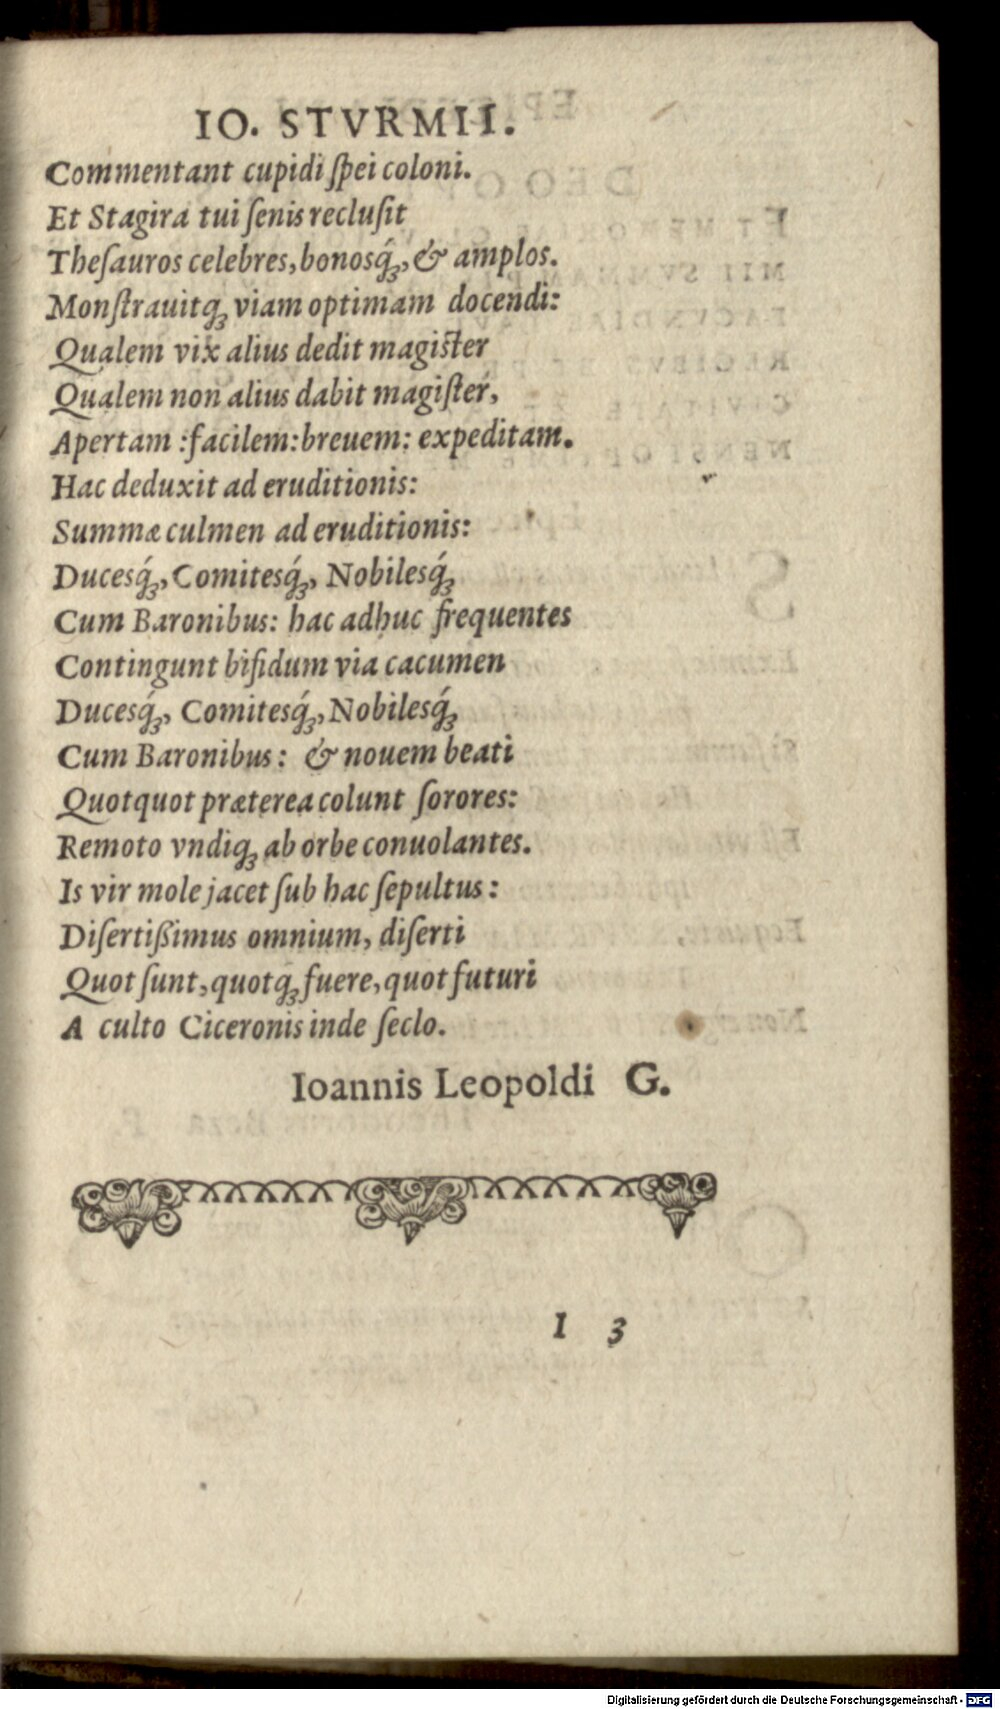 IO. STVRMII.
Commentant cupidi ſpei coloni.
Et Stagira tui ſenis recluſit
Theſauros celebres, bonosq́ꝫ, & amplos.
Monſtrauitqꝫ viam optimam docendi:
Qualem vix alius dedit magiſter
Qualem non alius dabit magiſter,
Apertam :facilem: breuem: expeditam.
Hac deduxit ad eruditionis:
Summæ culmen ad eruditionis:
Ducesq́ꝫ, Comitesq́ꝫ, Nobilesq́ꝫ
Cum Baronibus: hac adhuc frequentes
Contingunt bifidum via cacumen
Ducesq́ꝫ, Comitesq́ꝫ, Nobilesq́ꝫ
Cum Baronibus: & nouem beati
Quotquot præterea colunt ſorores:
Remoto vndiqꝫ ab orbe conuolantes.
Is vir mole jacet ſub hac ſepultus:
Diſertißimus omnium, diſerti
Quot ſunt, quotqꝫ fuere, quot futuri
A culto Ciceronis inde ſeclo.
Ioannis Leopoldi G.
I 3
Digitalisierung gefördert durch die Deutsche Forschungsgemeinschaft - DFG